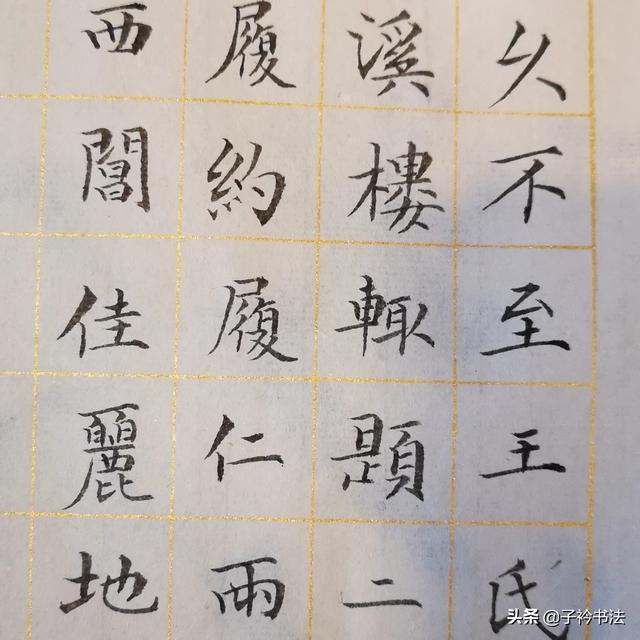 久不至王氏
溪樓輙題二
履約履仁兩
西閶佳麗地
头条 @子衿书法